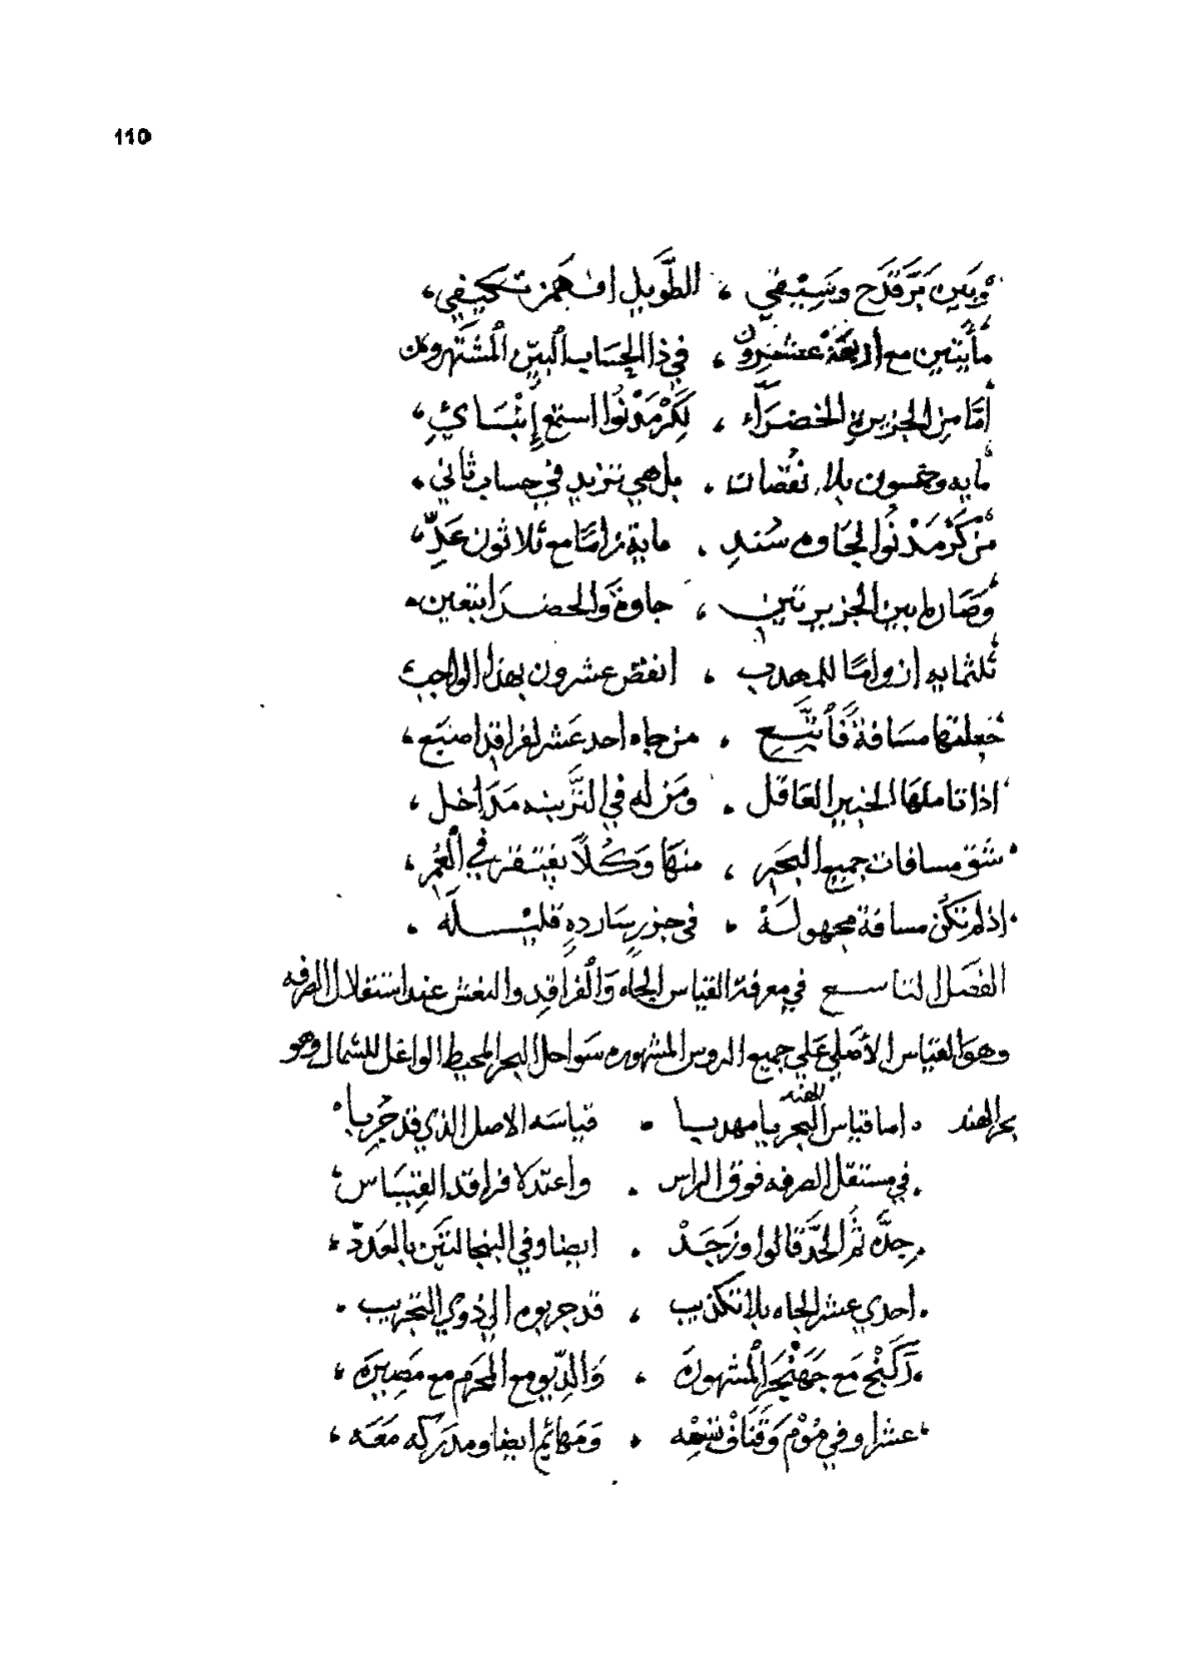 110
وبين برقدح وسيفي ، الطويل افهمن تكحيفي ،
مأيتين مع أربعة عشرون ، في ذا الحساب البين المشتهرون
أما من الجزيرة الخضراء ، لكرمدنوا استمع إنبائي ،
مايه وخمسون بلا نقصان . بل هي تزيد في حساب ثاني .
من كرمدنوا لجاوه سند . ماية زاما مع ثلاثون عد ،
وصار ما بين الجزيرتين ، جاوة والخضرا بتعين .
ثلثمايه ازواما للمهدب ، انقص عشرون بهذا الواجب ،
جعلتها مسافة فأتبع ، من جاه احد عشر لفراقد اصبع ،
اذا تاملها الخبير العاقل . ومن له في التربيه مداخل ،
شق مسافات جميع البحر ، منها وكلا يفتقر في العمر ،
اذ لم تكن مسافة مجهولة ، في جزر سارده قليله .
الفصل التاسع في معرفة القياس الجاه والفراقد والنعش عند استقلال الصرفه
وهو القياس الأصلي علي جميع الروس المشهوره سواحل البحر المحيط الواغل للشمال وهو
بحر الهند . اما قياس البحر الهند يا مهدبا . قياسه الاصل الذي قد جربا
. في مستقل الصرفه فوق الراس . واعتد كا فراقد القياس
. جده ثم الحد قالوا وزجد . ايضا وفي البنجالتين بالعدد ،
. احدي عشر الجاه بلا تكذيب ، قد جربوه الي ذوي التجريب .
. آكنج مع جهنجر المشهورة . والديو مع المحرم مع مصيرة ،
عشرا وفي موم وقناف تسعه . ومهائم ايضا ومدركه معه ،